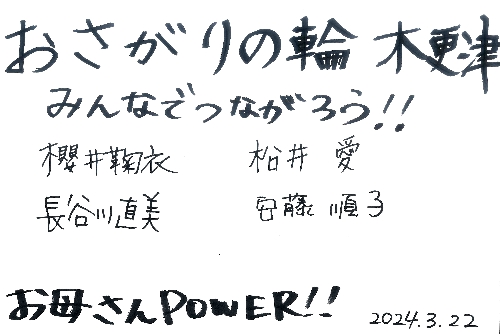 おさがりの輪 木更津
みんなでつながろう!!
櫻井鞠衣 松井 愛
長谷川直美 安藤 順子
お母さんPOWER!!
2024.3.22